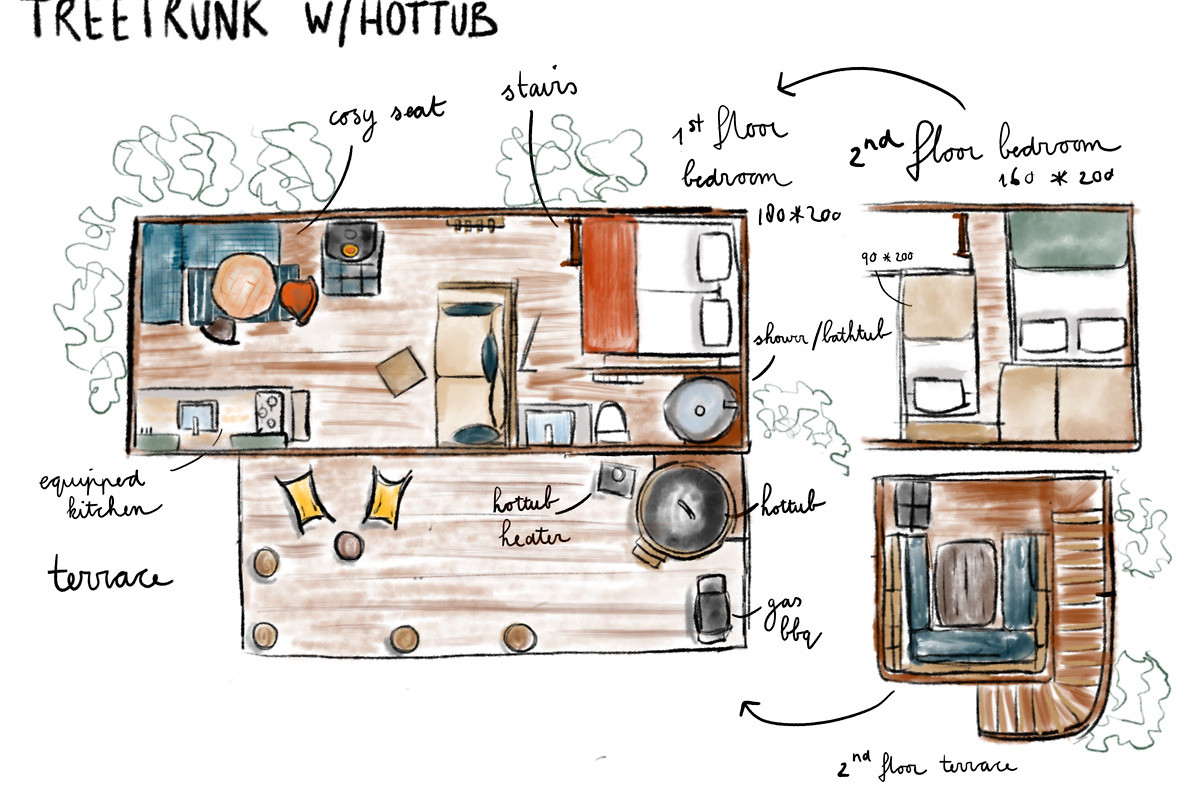 TREETRUNK W/HOTTUB
cosy seat
stairs
1st floor
bedroom
180*200
2nd floor bedroom
160 * 200
90 * 200
shower/bathtub
equipped
kitchen
terrace
hottub
heater
hottub
gas
bbq
2nd floor terrace